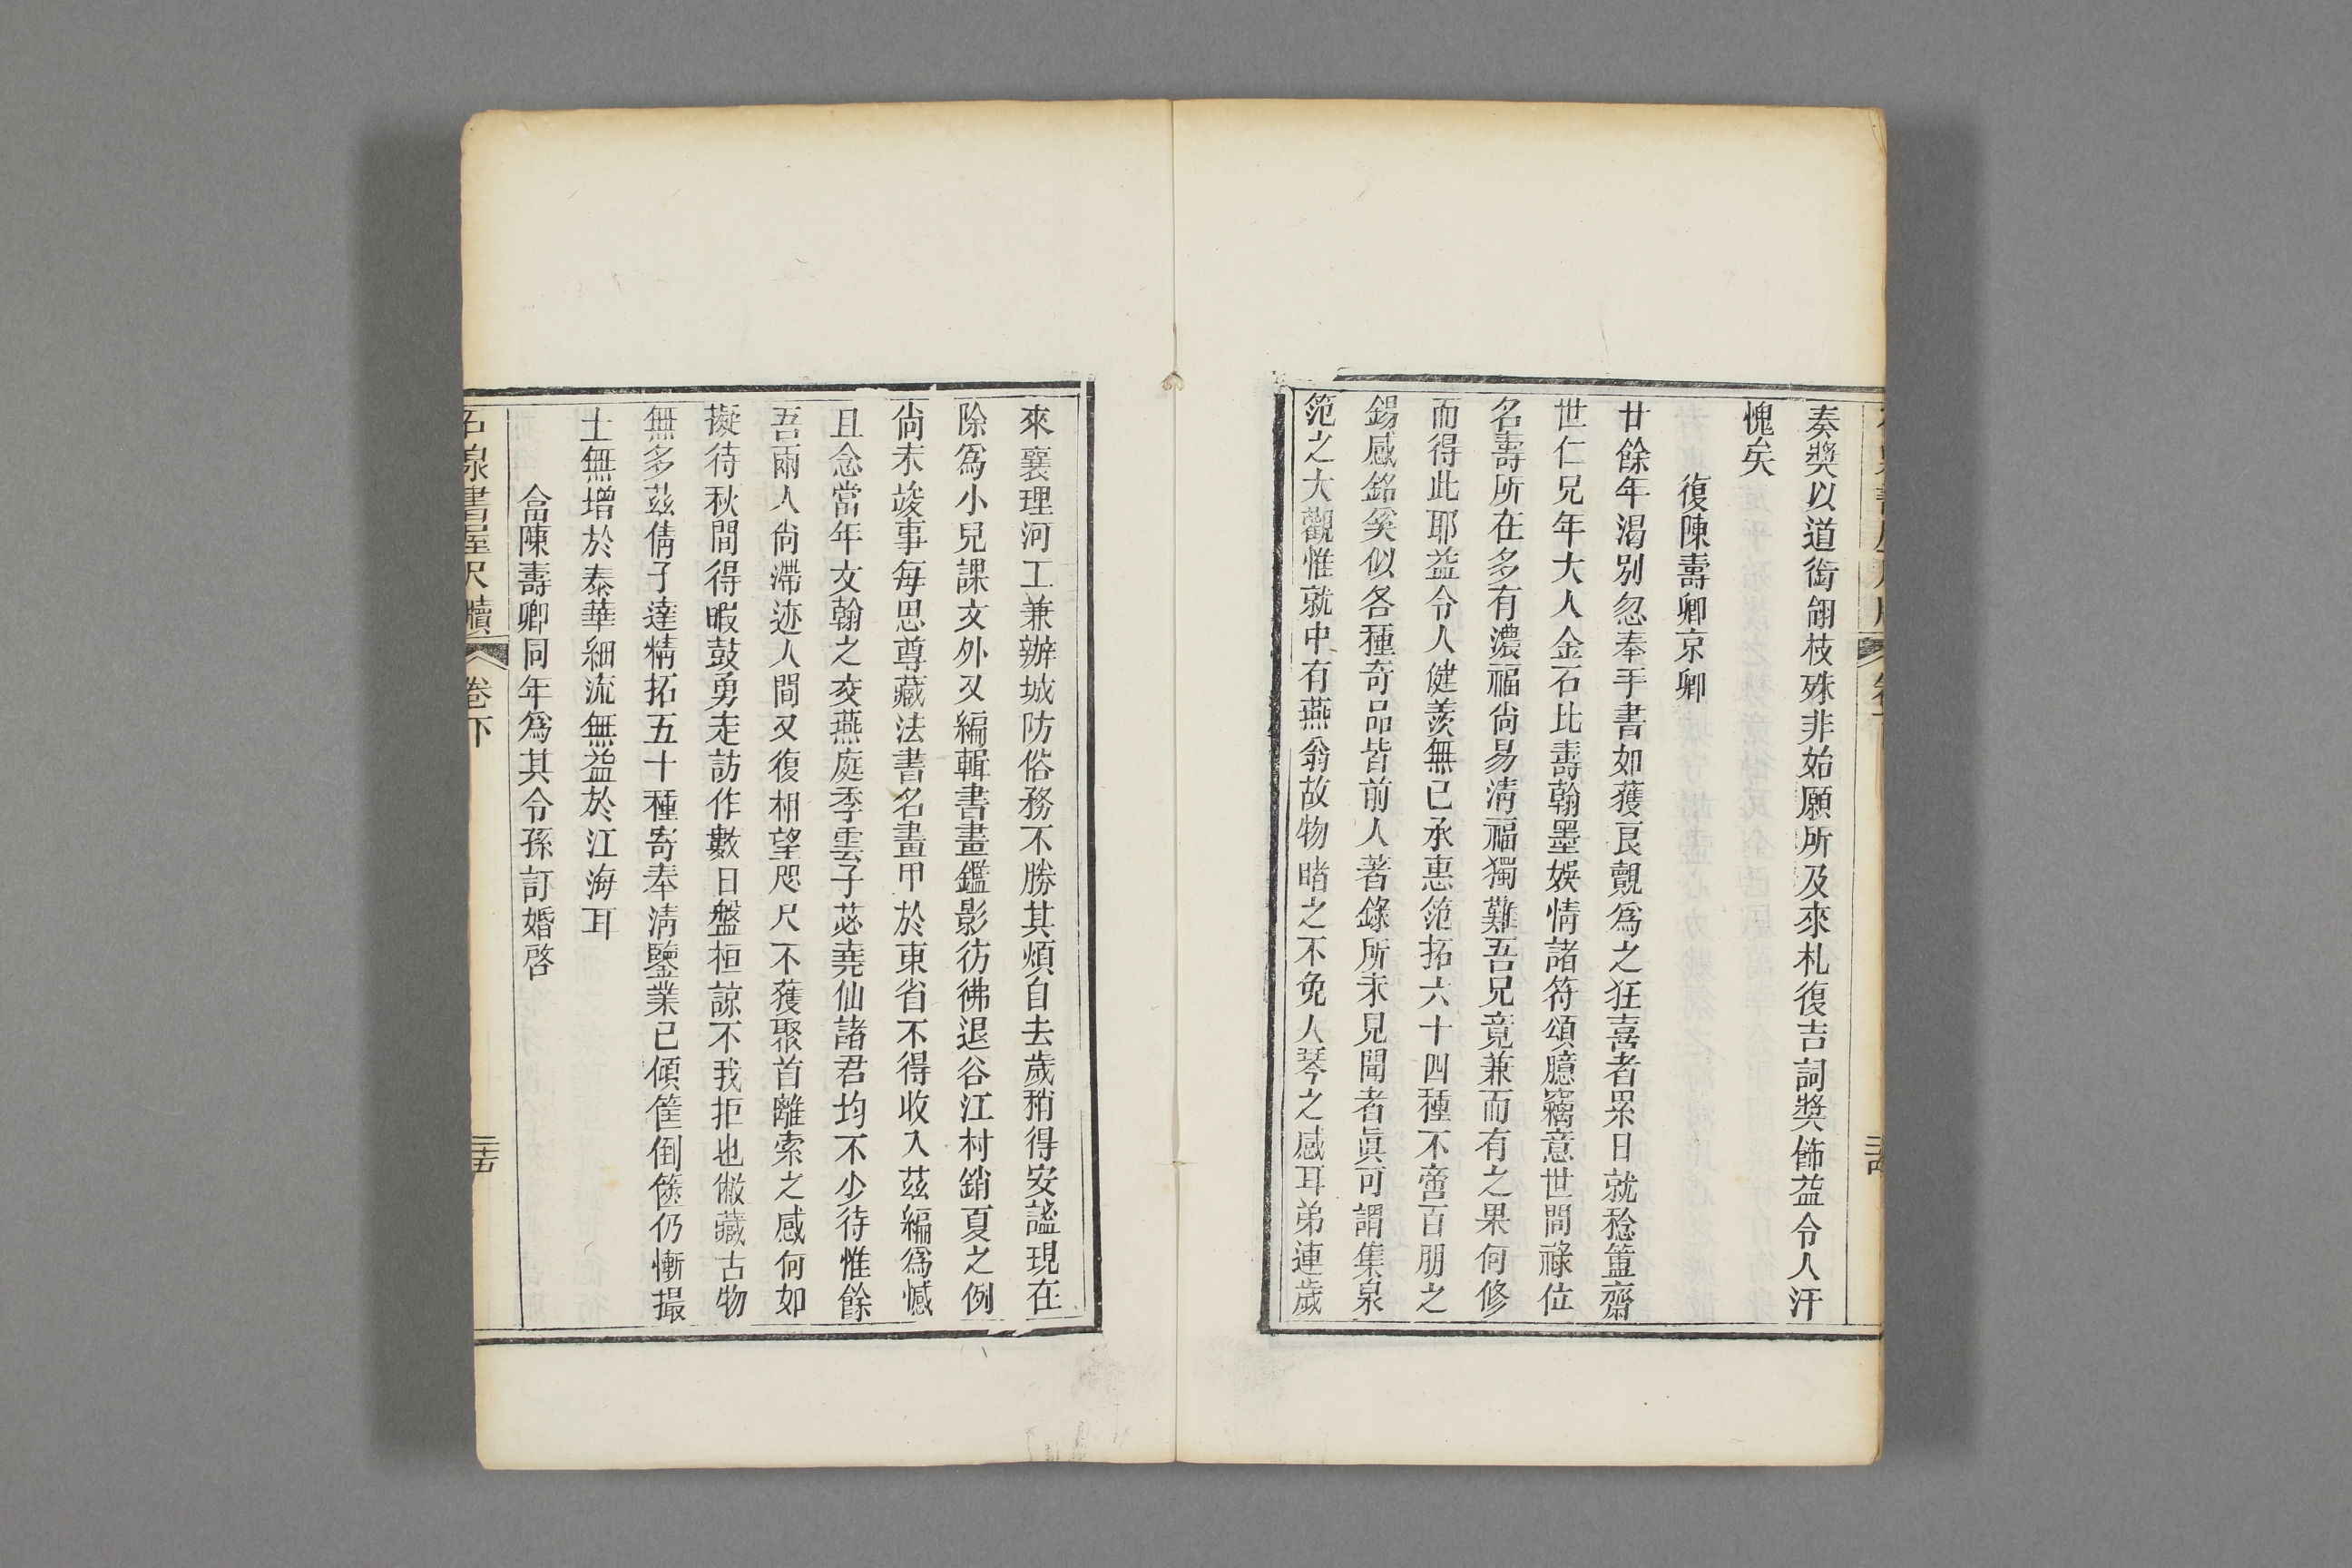 奏獎以道銜翎枝殊非始願所及來札復吉詞獎飾益令人汗
愧矣
復陳壽卿京卿
廿餘年渴別忽奉手書如獲良覿爲之狂喜者累日就稔簠齋
世仁兄年大人金石比壽翰墨娛情諸符頌臆竊意世間祿位
名壽所在多有濃福尙易淸福獨難吾兄竟兼而有之果何修
而得此耶益令人健羨無已承惠范拓六十四種不啻百朋之
錫感銘奚似各種奇品皆前人著錄所未見聞者眞可謂集泉
范之大觀惟就中有燕翁故物睹之不免人琴之感耳弟連歲
來襄理河工兼辦城防俗務不勝其煩自去歲稍得安謐現在
除爲小兒課文外又編輯書畫鑑影彷彿退谷江村銷夏之例
尙未竣事每思尊藏法書名畫甲於東省不得收入茲編爲憾
且念當年文翰之交燕庭季雲子苾堯仙諸君均不少待惟餘
吾兩人尙滯迹人間又復相望咫尺不獲聚首離索之感何如
擬待秋間得暇鼓勇走訪作數日盤桓諒不我拒也敝藏古物
無多茲倩子達精拓五十種寄奉淸鑒業已傾筐倒篋仍慚撮
土無增於泰華細流無益於江海耳
合陳壽卿同年爲其令孫訂婚啓
石泉書屋尺牘 卷下 三十五